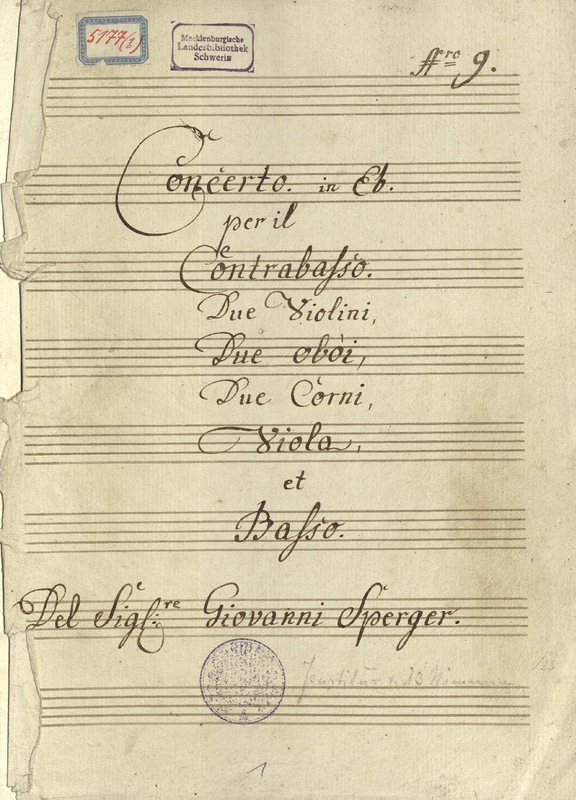 5177(2)
Mecklenburgische
Landesbibliothek
Schwerin
Nro 9.
Concerto. in Eb.
per il
Contrabaſso.
Due Violini,
Due obòi,
Due Corni,
Viola,
et
Baſso.
Del Sigl:re Giovanni Sperger.
Partitur + 13
1